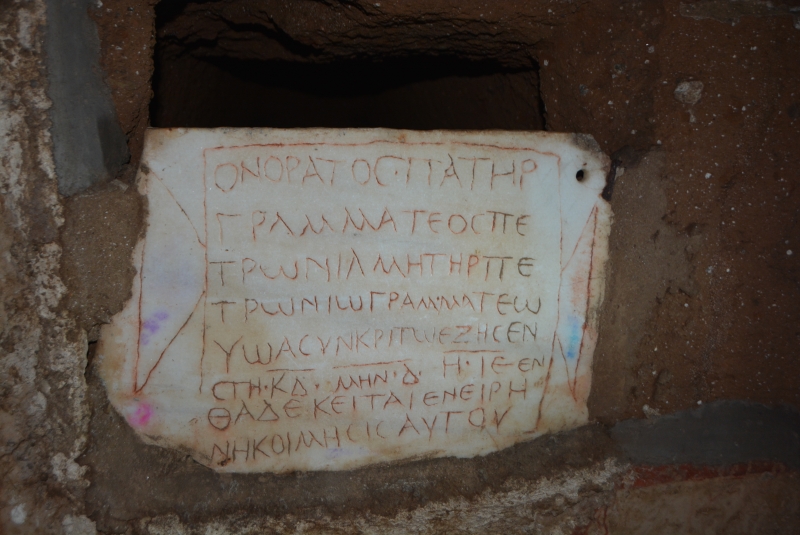 ΟΝΟΡΑΤΟС·ΠΑΤΗΡ
ΓΡΑΜΜΑΤΕΟСΠΕ
ΤΡѠΝΙΑΜΗΤΗΡΠΕ
ΤΡѠΝΙѠΓΡΑΜ·ΜΑΤΕѠ
ΥѠΑСΥΝΚΡΙΤѠΕΖΗСΕΝ
СΤΗ·ΚΔ·ΜΗΝ·Δ·Η·ΙΕ·ΕΝ
ΘΑΔΕ·ΚΕΙΤΑΙΕΝΕΙΡΗ
ΝΗΚΟΙΜΗСΙСΑΥΤΟΥ